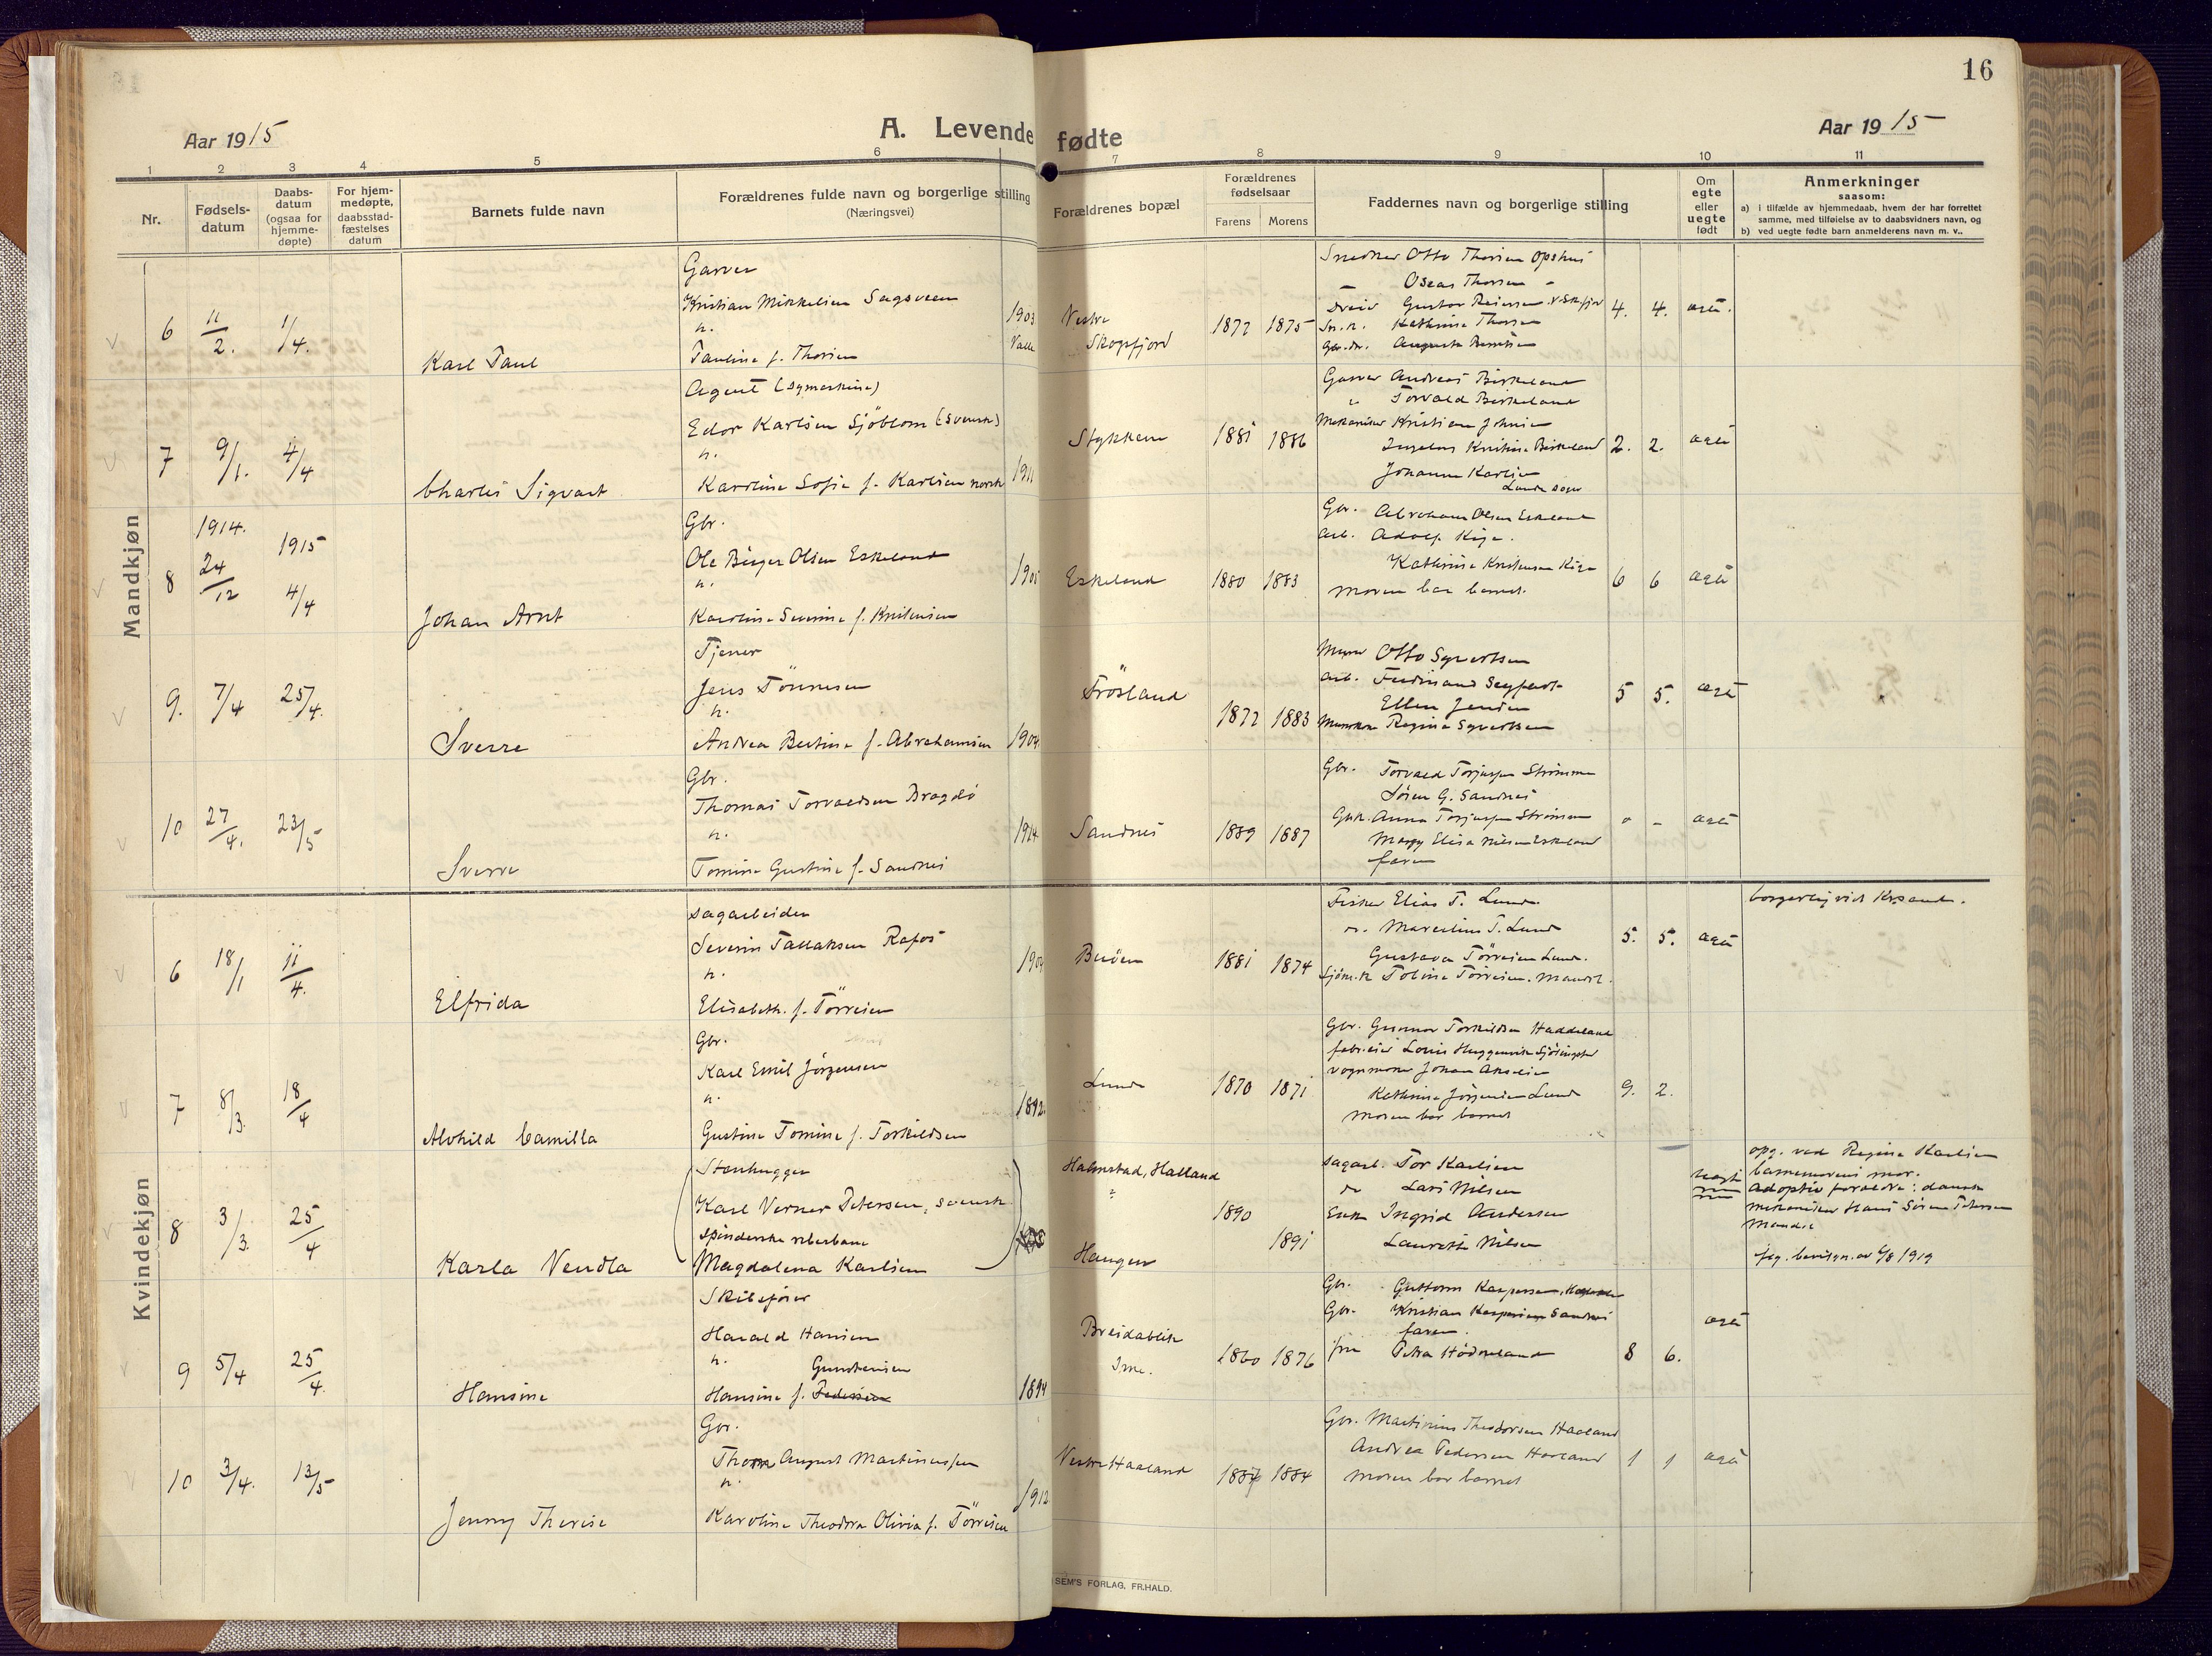 16
Aar 1915
A. Levende fødte
Aar 1915
1 2 3 4 5 6 7 8 9 10 11
Nr.
Fødsels-
datum
Daabs-
datum
(ogsaa for
hjemme-
døpte)
For hjem-
medøpte,
daabsstad-
fæstelses
datum
Barnets fulde navn
Forældrenes fulde navn og borgerlige stilling
(Næringsvei)
Forældrenes bopæl
Forældrenes
fødselsaar
Farens Morens
Faddernes navn og borgerlige stilling
Om
egte
eller
uegte
født
Anmerkninger
saasom:
a) i tilfælde av hjemmedaab, hvem der har forrettet
samme, med tilføielse av to daabsvidners navn, og
b) ved uegte fødte barn anmelderens navn m. v..
Mandkjøn
6 11/2. 1/4.
Karl Paul
Garver
Kristian Mikkelsen Sagsveen
h.
Pauline f. Thorsen
1903
Valle
Vestre
Skogsfjord
1872 1875
Snedker Otto Thorsen Opshus
Oseas Thorsen
Gustav Reiersen
Kathrine Thorsen
4. 4. egte.
7 9/1. 4/4
Charles Sigvart
Agent (symaskine)
Edor Karlsen Sjöblom (svensk)
h.
Karoline Sofie f. Karlsen norsk
1911
Stykkene
1881 1886
Garver Andreas Birkeland
" Torvald Birkeland
Mekaniker Kristian Johnsen
Ingeborg Kristine Birkeland
Johanne Karlsen
Lunde sogn
2. 2. egte
8 1914. 24/12 1915 4/4
Johan Arnt
Gbr.
Ole Birger Olsen Eskeland
h.
Karoline Severine f. Kristensen
Eskeland
1880 1883
Gbr. Abraham Olsen Eskeland
arb. Adolf Kige.
Kathrine Kristensen Kige
moren bar barnet.
6 6 egte
9. 7/4 25/4.
Sverre
Tjener
Jens Tönnesen
h.
Andrea Bertine f. Abrahamsen
1904
Frösland
1872 1883
Murer Otto Syvertsen
arb. Ferdinand
Ellen Jensen
Regine Syvertsen
5 5. egte
10 27/4. 23/5
Sverre
Gbr.
Thomas Torvaldsen Bragdö
h.
Tomine Gustine f. Sandnes
1914
Sandnes
1889 1887
Gbr. Torvald Torjussen Strömme
Sören G. Sandnes
Anna Torjussen Strömme
Magy Elisa Nilsen Eskeland
faren
0 - egte
Kvindekjøn
6 18/1 11/4.
Elfrida
sagarbeider
Severin Tallaksen Rafos
h.
Elisabeth. f. Törresen
Buöen
1881 1874
Fisker Elias T. Lunde.
Marselius T. Lund
Gustava Törresen Lunde.
Tobine Törresen. Mandal.
5. 5. egte
borgerlig viet Krsand.
7 8/3. 18/4
Alvhild Camilla
Gbr.
Karl Emil Jörgensen
h.
Gustine Tomine f. Torkildsen
1892.
Lunde
1870 1871
Gbr. Gunnar Torkildsen Haddeland
vognmann Johan Akselsen
Kathrine Jörgensen Lunde
Moren bar barnet
9. 2.
8 3/3. 25/4
Karla Vendla
Stenhugger
Karl Verner Petersen, svensk
spinderske reberbane
Magdalena Karlsen
Halmstad, Halland
Haugen
1890
1891
sagarb. Tor Karlsen
do Lars Nilsen
Enke Ingrid Andersen
Laurette Nilsen
uegte
opg. ved Regine Karlsen
barnemorens mor.
Adoptiv forældre: dansk
mekaniker Hans Sören Petersen
Mandal
kg. bevilgn. av 6/8 1919
9 5/4 25/4.
Hansine
Skibsförer
Harald Hansen
h. Gundersen
Hansine f. Pedersen
1894
Breidablik
Ime.
1860 1876
Gbr. Guttorm Kaspersen
Gbr. Kristian Kaspersen Sandnes
faren.
fru Petra Hödneland
8 6.
egte
10 3/4. 13/5
Jenny Therese
Gbr.
Thom August Martiniussen
h.
Karoline Theodora Olivia f. Törresen
1912
Vestre Haaland
1887 1884
Gbr. Martinius Theodorsen Haaland
Andrea Pedersen Haaland
Moren bar barnet
1 1 egte
SEM'S FORLAG, FR.HALD.